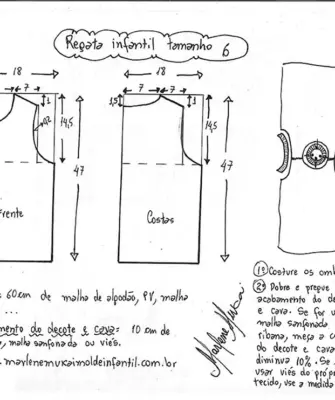 Regata infantil tamanho 6
18
18
7
7
1
7
7
1
1,5
0,2
14,5
14,5
47
47
Frente
Costas
e 60cm de malha de algodão, PV, malha
...
mento do decote e cava = 10 cm de
, malha sanfonada ou viés.
.marlenemukaimoldeinfantil.com.br
Marlene Mukai
1º Costure os omb
2º Dobre e pregue
acabamento do de
e cava. Se for u
malha sanfonada
ribana, meça a c
do decote e cava
diminua 10%. Se
usar viés do própr
tecido, use a medida